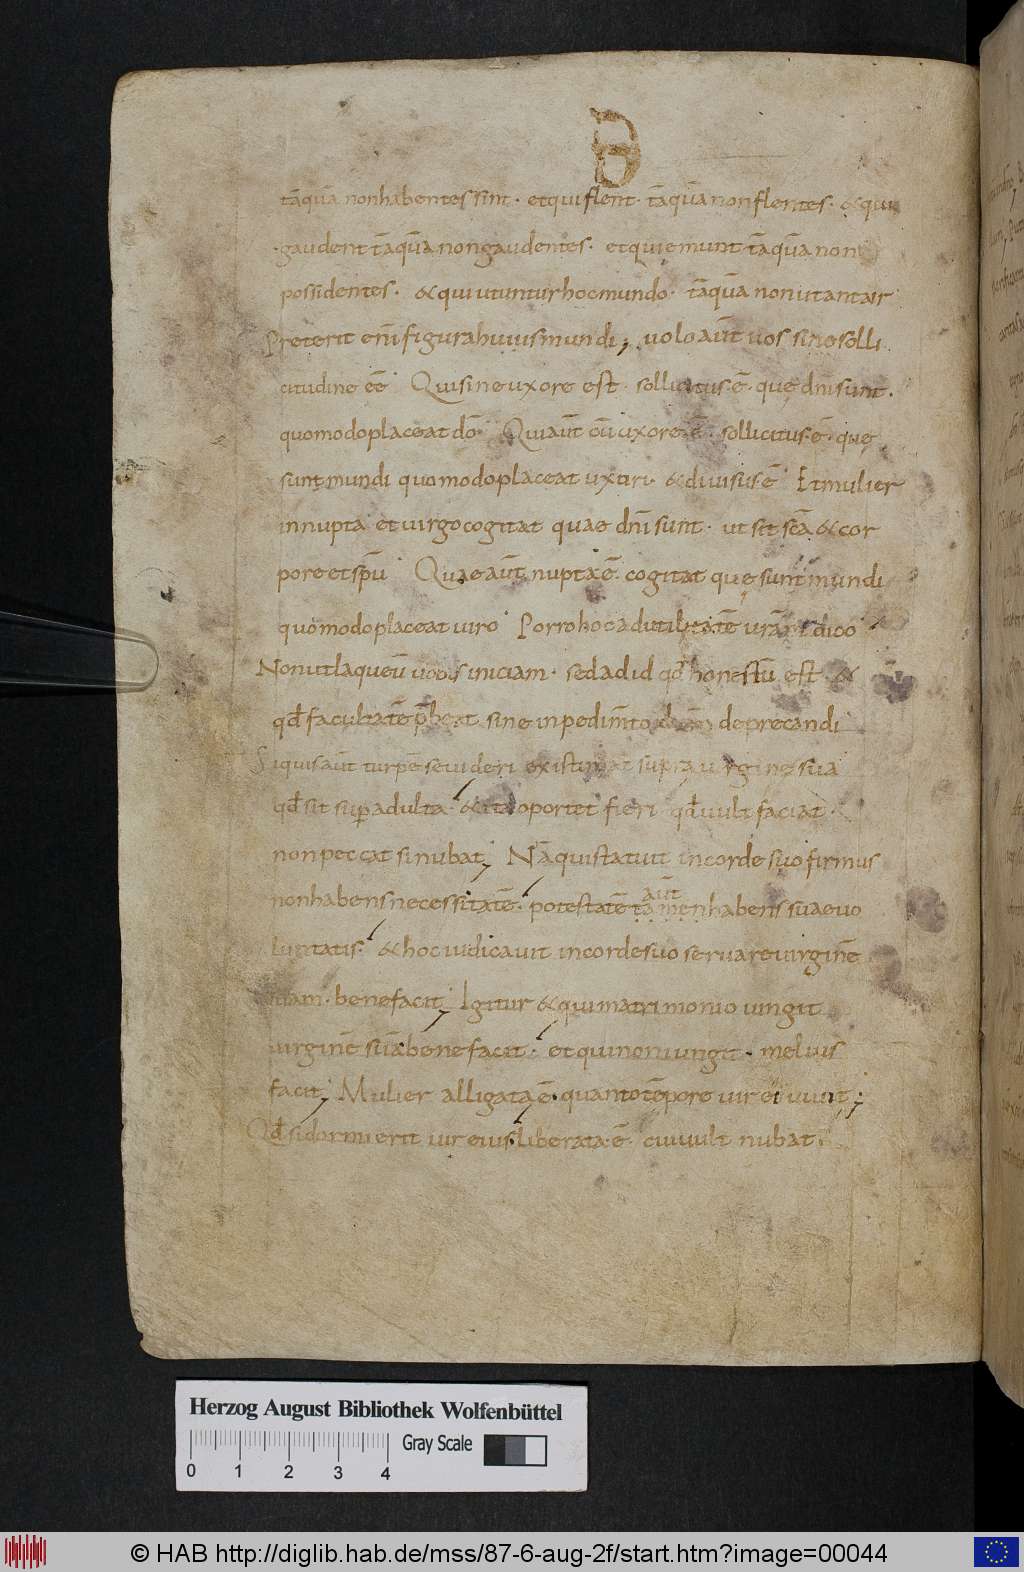 tāquā non habentes sint· et qui flent· tāquā non flentes· & qui
gaudent tāquā non gaudentes· et qui emunt· tāquā non
possidentes· & qui utuntur hoc mundo· tāquā non utantur
Preterit enī figura huius mundi; uolo aūt uos sine solli
citudine eē Qui sine uxore est· sollicitus ē· quę dnī sunt·
quomodo placeat dō· Qui aūt cū uxore ē· sollicitus ē· quę
sunt mundi quomodo placeat uxori· & diuisus ē Et mulier
innupta et uirgo cogitat quae dnī sunt· ut sit scā & cor
pore et spū Quae aūt nupta ē· cogitat quę sunt mundi
quomodo placeat uiro Porro hoc ad utilitatē urā dico
Non ut laqueū uobis iniciam· sed ad id qđ honestū est· &
qđ facultatē p̄beat sine inpedimto dnm deprecandi
Si quis aūt turpē se uideri existimat supra uirgine sua
qđ sit sup adulta· & ita oportet fieri qđ uult faciat·
non peccat si nubat; Nā qui statuit in corde suo firmus
non habens necessitatē· potestatē tamen habens suae uo
aūt
luntatis· & hoc iudicauit in corde suo seruare uirginē
suam· bene facit; Igitur & qui matrimonio iungit
uirginē suā bene facit· et qui non iungit· melius
facit; Mulier alligata ē· quanto tēpore uir ei uiuit;
Qđ si dormierit uir eius· liberata ē· cui uult nubat·
Herzog August Bibliothek Wolfenbüttel
Gray Scale
0 1 2 3 4
© HAB http://diglib.hab.de/mss/87-6-aug-2f/start.htm?image=00044